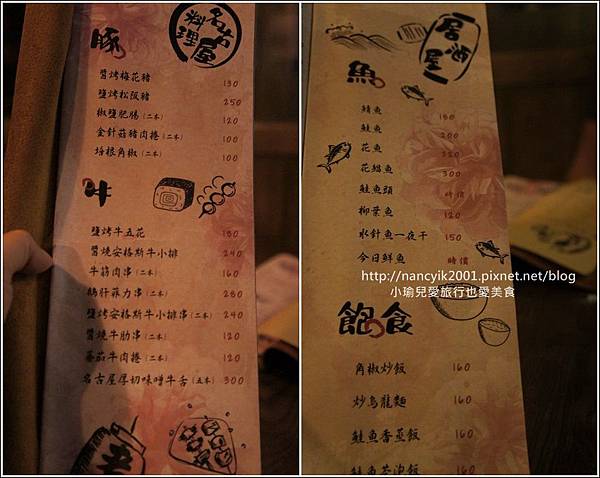 名古屋
料理
豚
醬烤梅花豬 130
鹽烤松阪豬 250
椒鹽肥腸(二本) 120
金針菇豬肉捲(二本) 100
培根角椒(二本) 100
牛
鹽烤牛五花 180
醬燒安格斯牛小排 240
牛筋肉串(二本) 160
鵝肝菲力串(二本) 280
鹽烤安格斯牛小排串(二本) 240
醬燒牛肋串(二本) 120
蕃茄牛肉捲(二本) 120
名古屋厚切味噌牛舌(五本) 300
居酒屋
魚
鯖魚 180
鮭魚 200
花魚 320
花鯽魚 300
鮭魚頭 時價
柳葉魚 120
水針魚一夜干 150
今日鮮魚 時價
http://nancyik2001.pixnet.net/blog
小瑜兒愛旅行也愛美食
飽食
角椒炒飯 160
炒烏龍麵 160
鮭魚香蒸飯 160
鮭魚茶泡飯 160